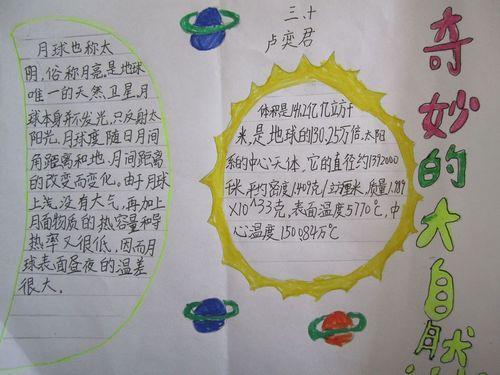 月球也称太
阴，俗称月亮，是地球
唯一的天然卫星，月
球本身并不发光，只反射太
阳光。月球度随日月间
角距离和地、月间距离
的改变而变化。由于月球
上浅没有大气，再加上
月面物质的热容量和导
热率又很低，因而月
球表面昼夜的温差
很大。
三、十
卢奕君
体积是1412亿亿立方千
米，是地球的130.25万倍。太阳
系的中心天体，它的直径约1392000
千米，平均密度1.409克/立方厘米，质量1.989
×10^33克，表面温度5770℃，中
心温度150084万℃
奇妙的大自然